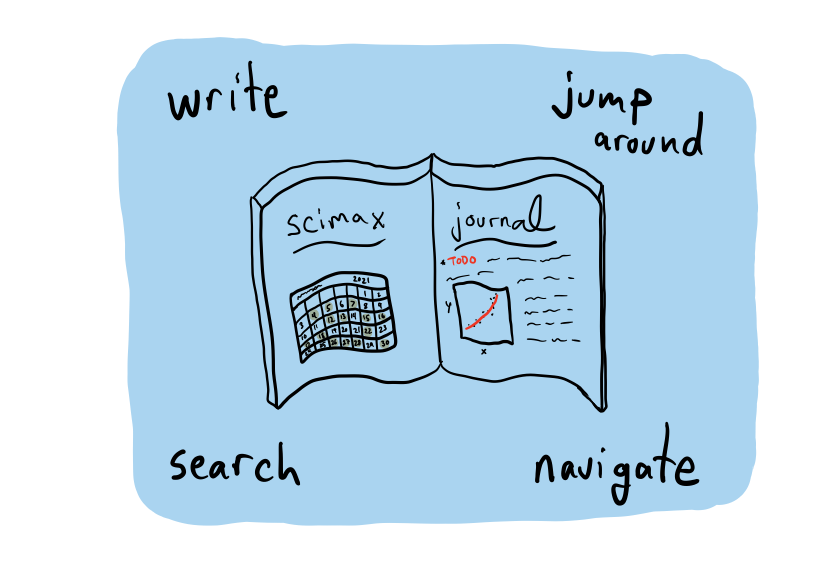 write
jump
around
scimax
journal
2021
* TODO
1 2
3 4 5 6 7 8 9
10 11 12 13 14 15 16
18 19 20 21 22 23
25 26 27 28 29 30
Y
X
search
navigate